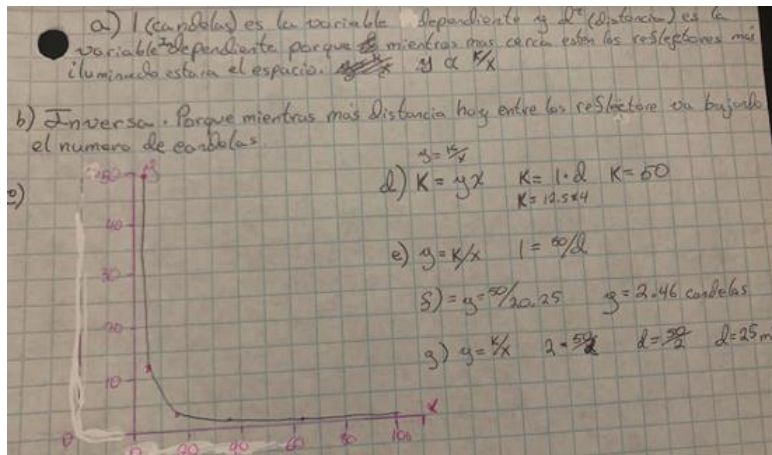 a) I (candelas) es la variable dependiente y d² (distancia) es la
variable independiente porque mientras mas cerca esten los reflejtores más
iluminado estara el espacio. y ∝ K/x
b) Inversa. Porque mientras más distancia hay entre los reflectore va bajando
el numero de candelas
y = K/x
d) K = yx K = I·d K = 50
K = 12.5x4
e) y = K/x I = 50/d
f) = y = 50/20.25 y = 2.46 candelas
g) y = K/x 2 = 50/d d = 50/2 d = 25 m
c)
y
50
40
30
20
10
0
0 20 40 60 80 100
x